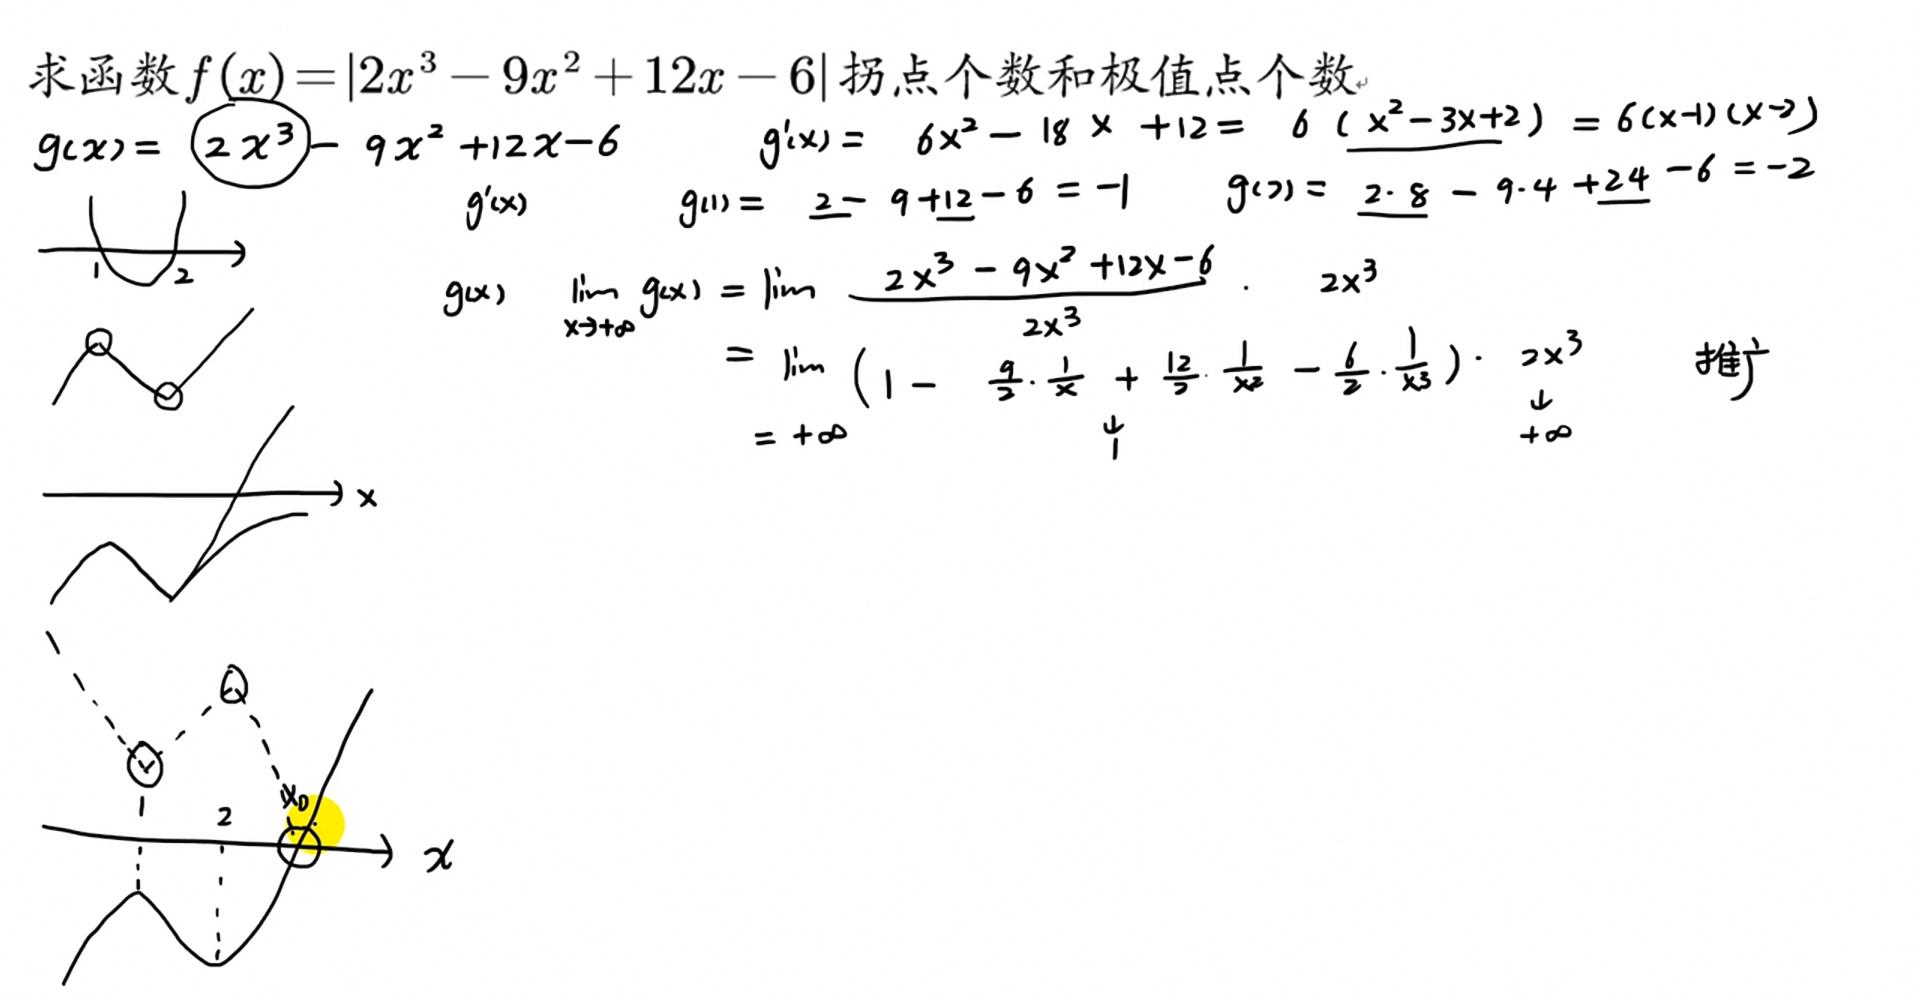 求函数f(x)=|2x³－9x²＋12x－6|拐点个数和极值点个数
g(x)= 2x³ - 9x² +12x-6 g'(x)= 6x² - 18x +12 = 6(x²-3x+2) = 6(x-1)(x-2)
g'(x) g(1)= 2-9+12-6=-1 g(2)= 2·8 - 9·4 +24 -6 = -2
1 2
g(x) lim x→+∞ g(x) = lim (2x³ - 9x² +12x-6)/(2x³) · 2x³
= lim (1 - 9/2·1/x + 12/2·1/x² - 6/2·1/x³)· 2x³ 推广
↓ ↓
= +∞ 1 +∞
x
x₀
1 2
x